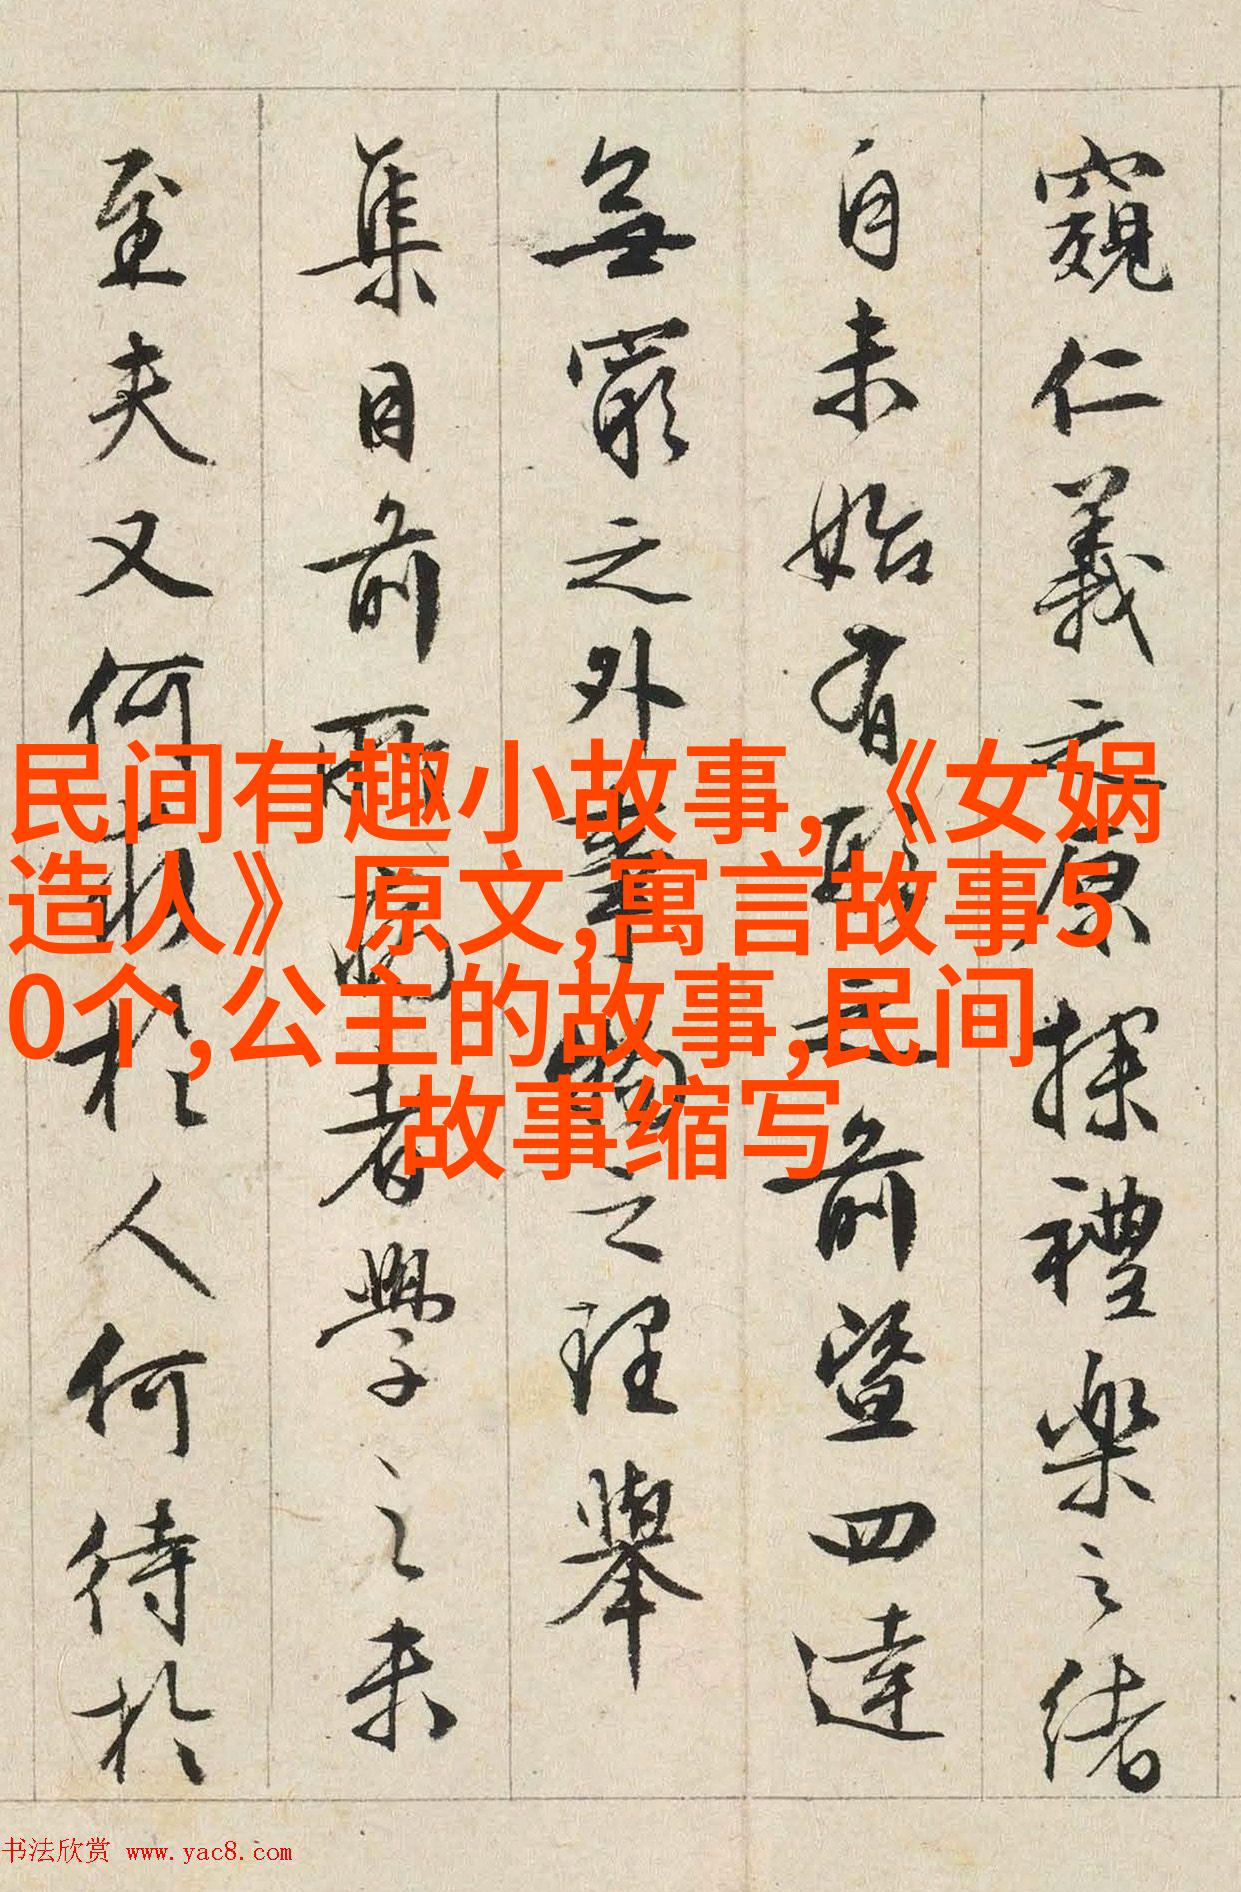 窺仁義之原探禮樂之緒
自未始有形之前暨四達
無窮之外事物之理舉
集目前而為者學之未
至夫又何求於人何待於
民间有趣小故事,《女娲
造人》原文,寓言故事5
0个,公主的故事,民间
故事缩写
书法欣赏 www.yac8.com